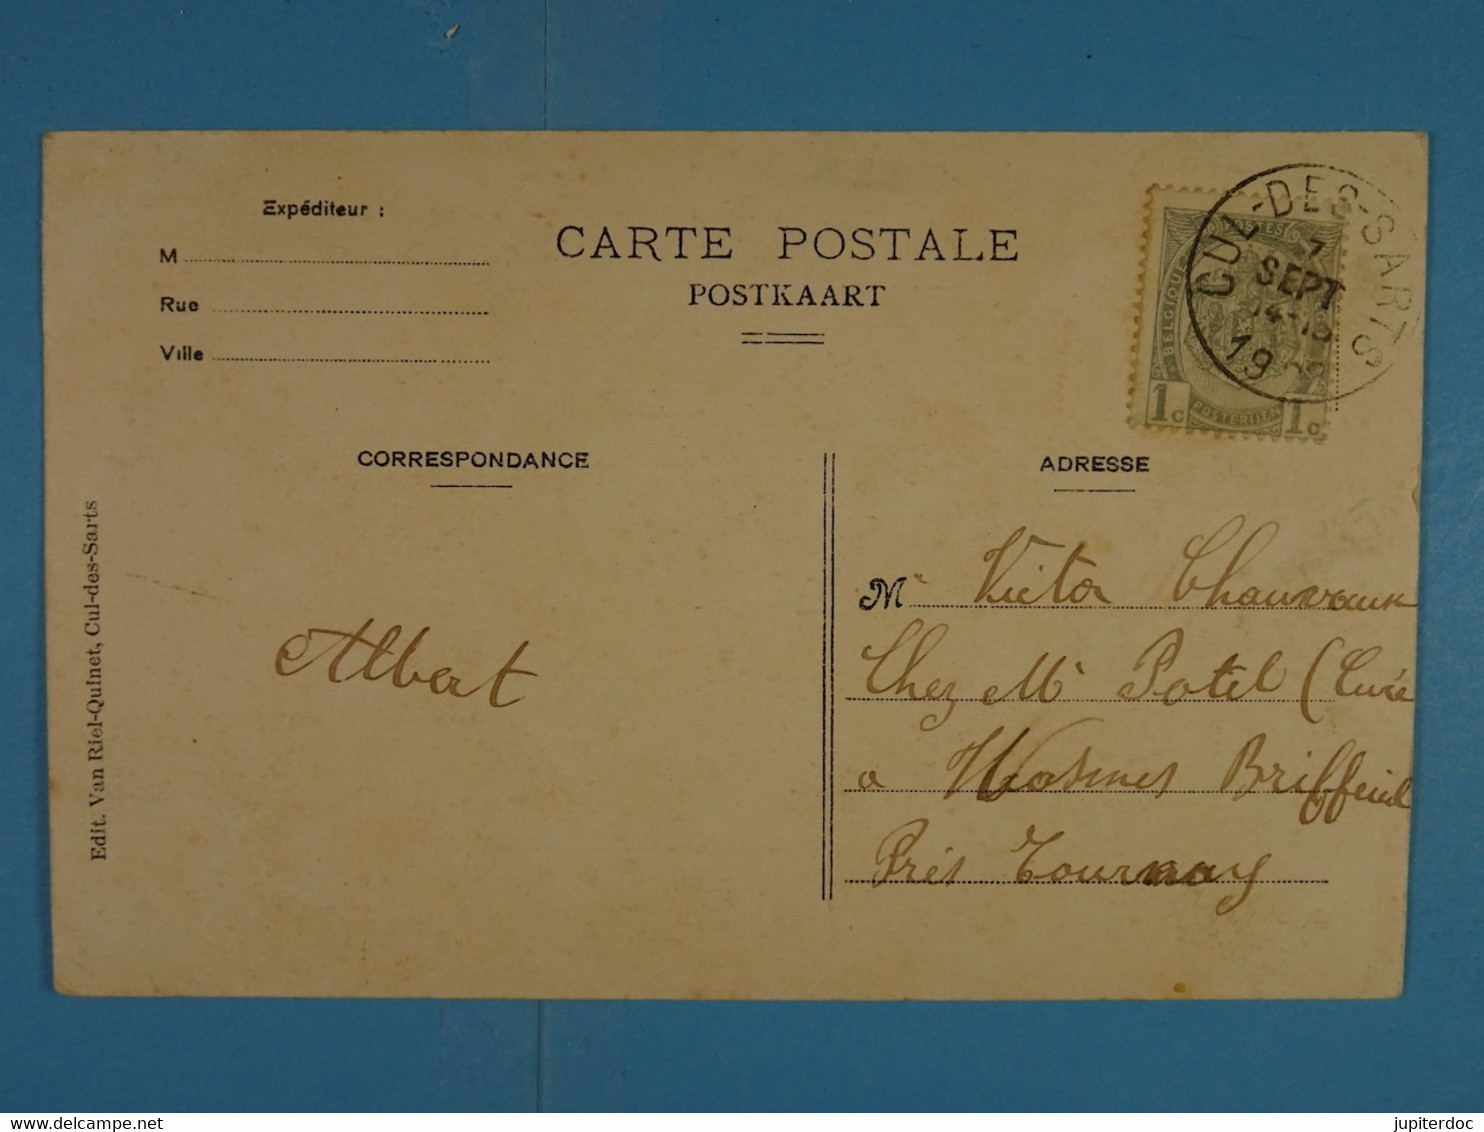 Expéditeur :
M
Rue
Ville
CARTE POSTALE
POSTKAART
CUL-DES-SARTS
7
SEPT
14-15
19
BELGIQUE
1c
POSTERIJEN
1c
CORRESPONDANCE
ADRESSE
Edit. Van Riel-Quinet, Cul-des-Sarts
Albert
M Victor Chauvaux
Chez Mr Potel (Curé
a Wasmes Briffeuil
Près Tournay
delcampe.net
jupiterdoc